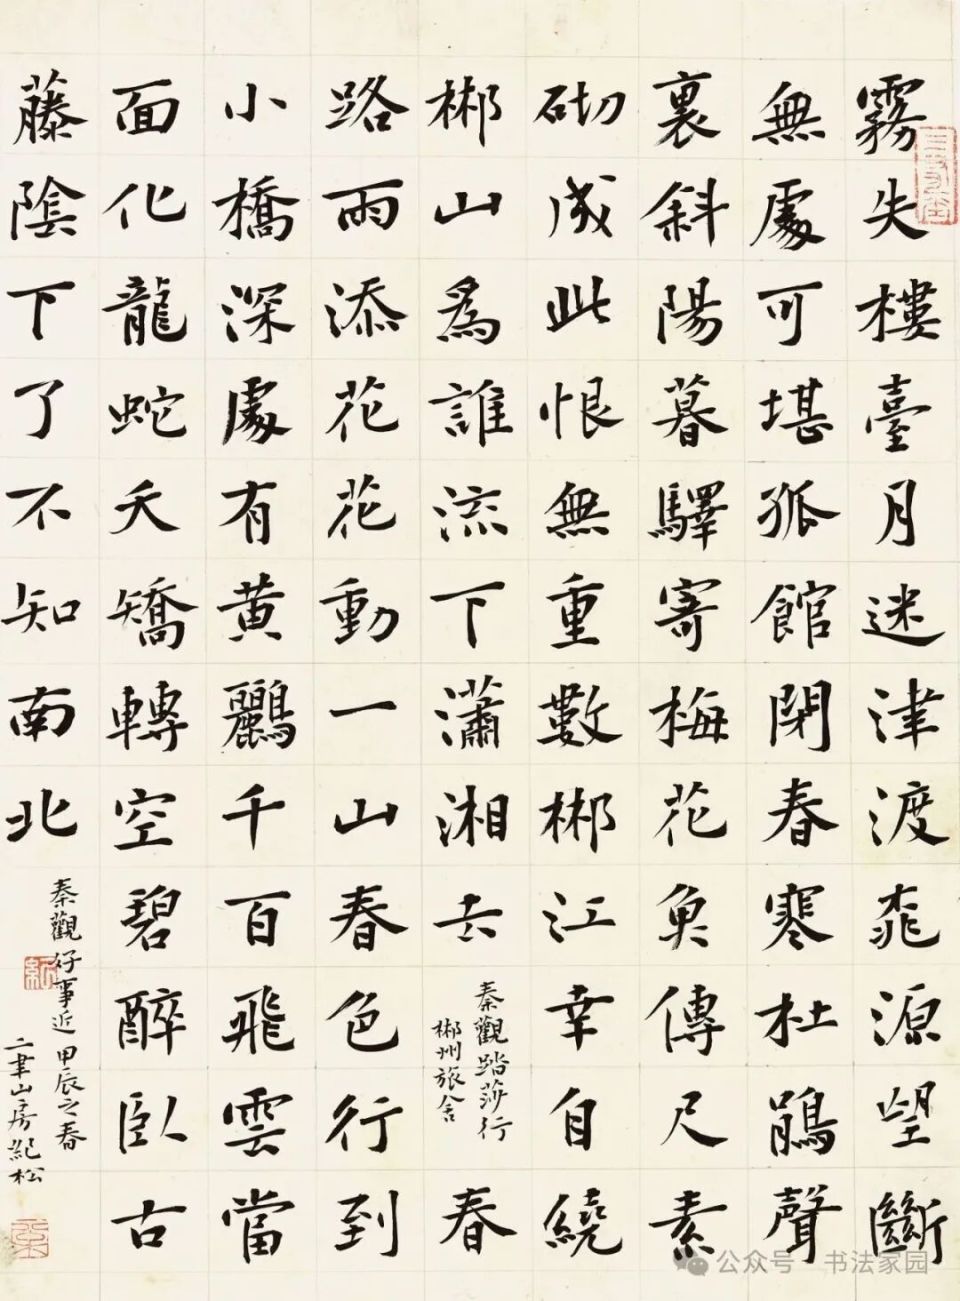 霧失樓臺月迷津渡桃源望斷
無處可堪孤館閉春寒杜鵑聲
裏斜陽暮驛寄梅花魚傳尺素
砌成此恨無重數郴江幸自繞
郴山爲誰流下瀟湘去
秦觀踏莎行
郴州旅舍
春
路雨添花花動一山春色行到
小橋深處有黃鸝千百飛雲當
面化龍蛇夭矯轉空碧醉臥古
藤陰下了不知南北
秦觀好事近 甲辰之春
二聿山房紀松
公众号·书法家园